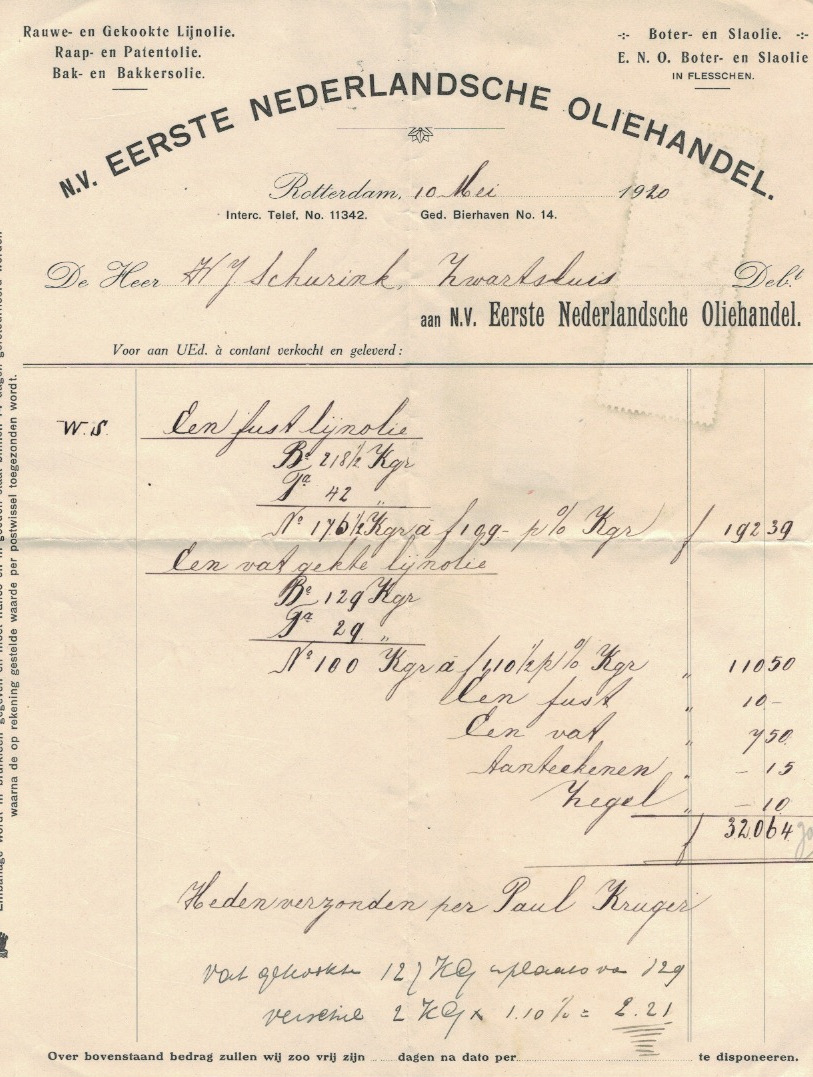 Rauwe- en Gekookte Lijnolie.
Raap- en Patentolie.
Bak- en Bakkersolie.
-:- Boter- en Slaolie. -:-
E. N. O. Boter- en Slaolie
IN FLESSCHEN.
N.V. EERSTE NEDERLANDSCHE OLIEHANDEL.
Rotterdam, 10 Mei 1920
Interc. Telef. No. 11342. Ged. Bierhaven No. 14.
De Heer H J Schurink, Zwartsluis Deb.t
aan N.V. Eerste Nederlandsche Oliehandel.
Voor aan UEd. à contant verkocht en geleverd:
W.S. Een fust lijnolie
Bo 218½ Kgr
Ta 42 „
No 176½ Kgr à f 199- p% Kgr f 192 39
Een vat gekte lijnolie
Bo 129 Kgr
Ta 29 „
No 100 Kgr à f 110½ p% Kgr „ 110 50
Een fust „ 10 -
Een vat „ 7 50
Aanteekenen „ - 15
Zegel „ - 10
f 320 64
Heden verzonden per Paul Kruger
vat gekookte 127 KG inplaats van 129
verschil 2 KG x 1.10½ = 2.21
Over bovenstaand bedrag zullen wij zoo vrij zijn dagen na dato per te disponeeren.
waarna de op rekening gestelde waarde per postwissel toegezonden wordt.